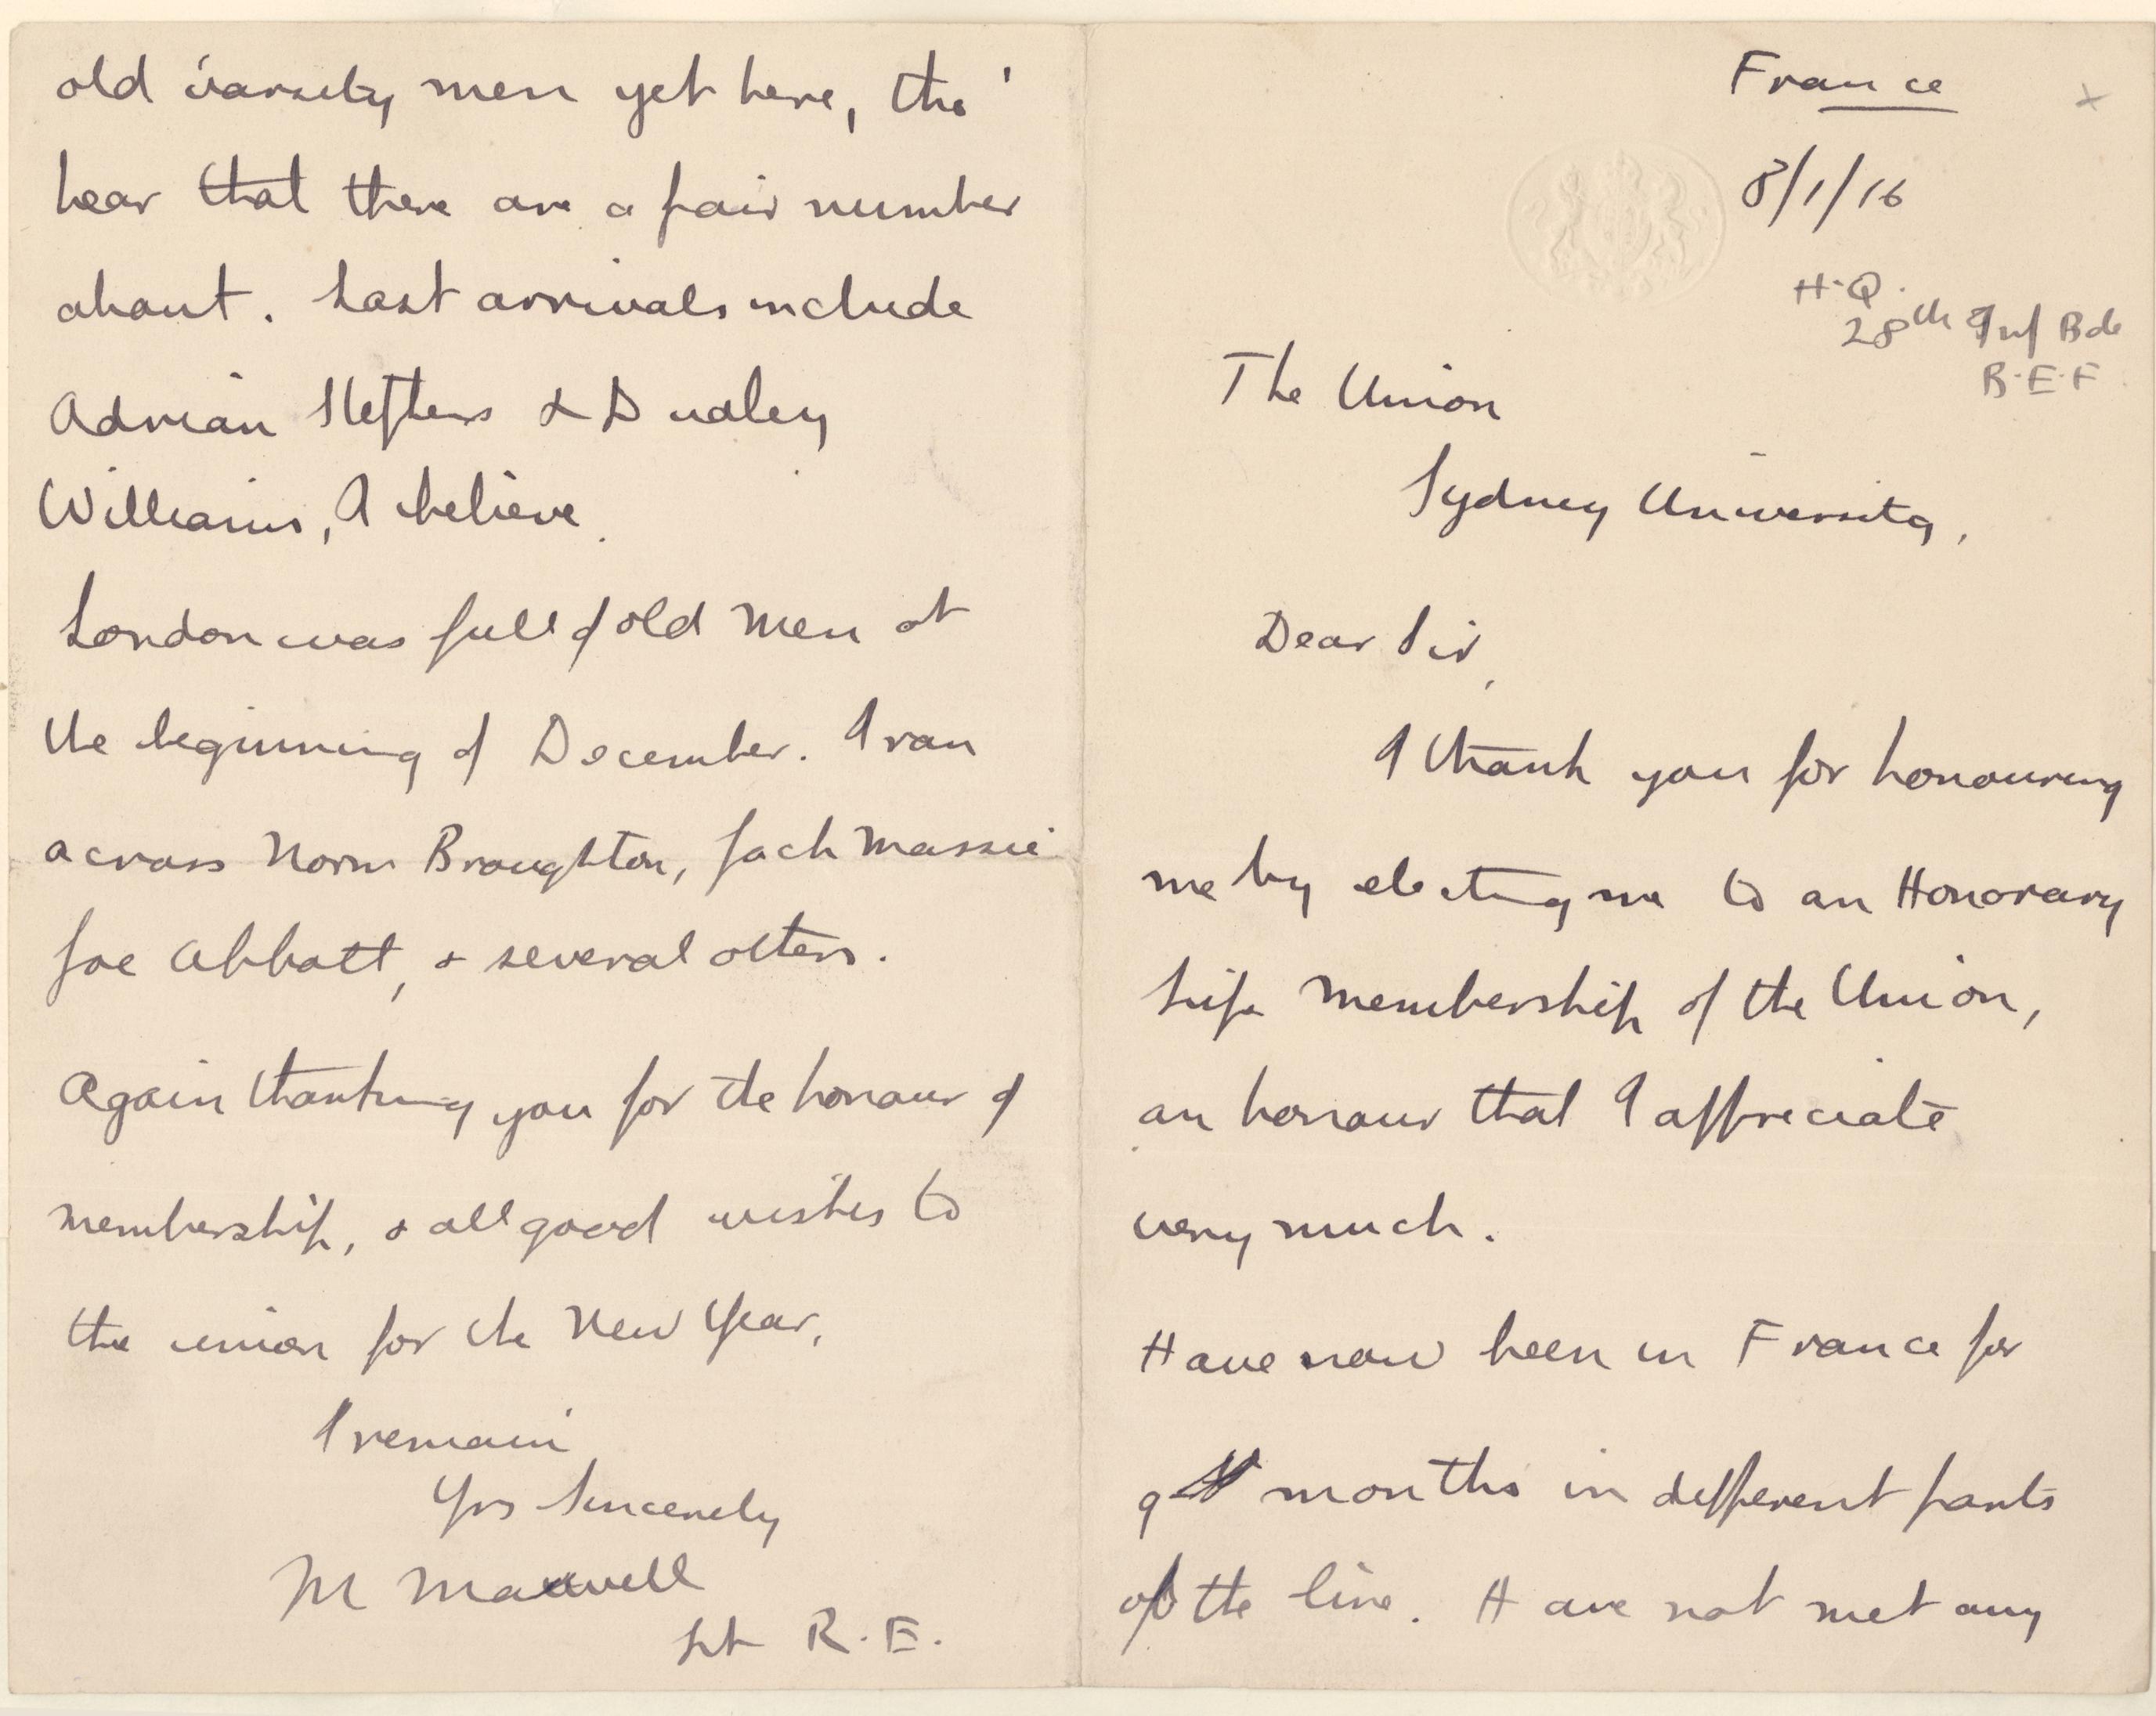 France
8/1/16
H.Q.
28th Inf Bde
B.E.F
The Union
Sydney University,
Dear Sir,
I thank you for honouring
me by electing me to an Honorary
Life membership of the Union,
an honour that I appreciate
very much.
Have now been in France for
9 months in different parts
of the line. Have not met any
old 'varsity men yet here, tho'
hear that there are a fair number
about. Last arrivals include
Adrian & Dudley
Williams, I believe.
London was full of old men at
the beginning of December. I ran
across Norm Broughton, Jack Massie
Joe Abbott, & several others.
Again thanking you for the honour of
membership, & all good wishes to
the union for the New Year,
I remain
Yrs Sincerely
M Maxwell
Lt R.E.